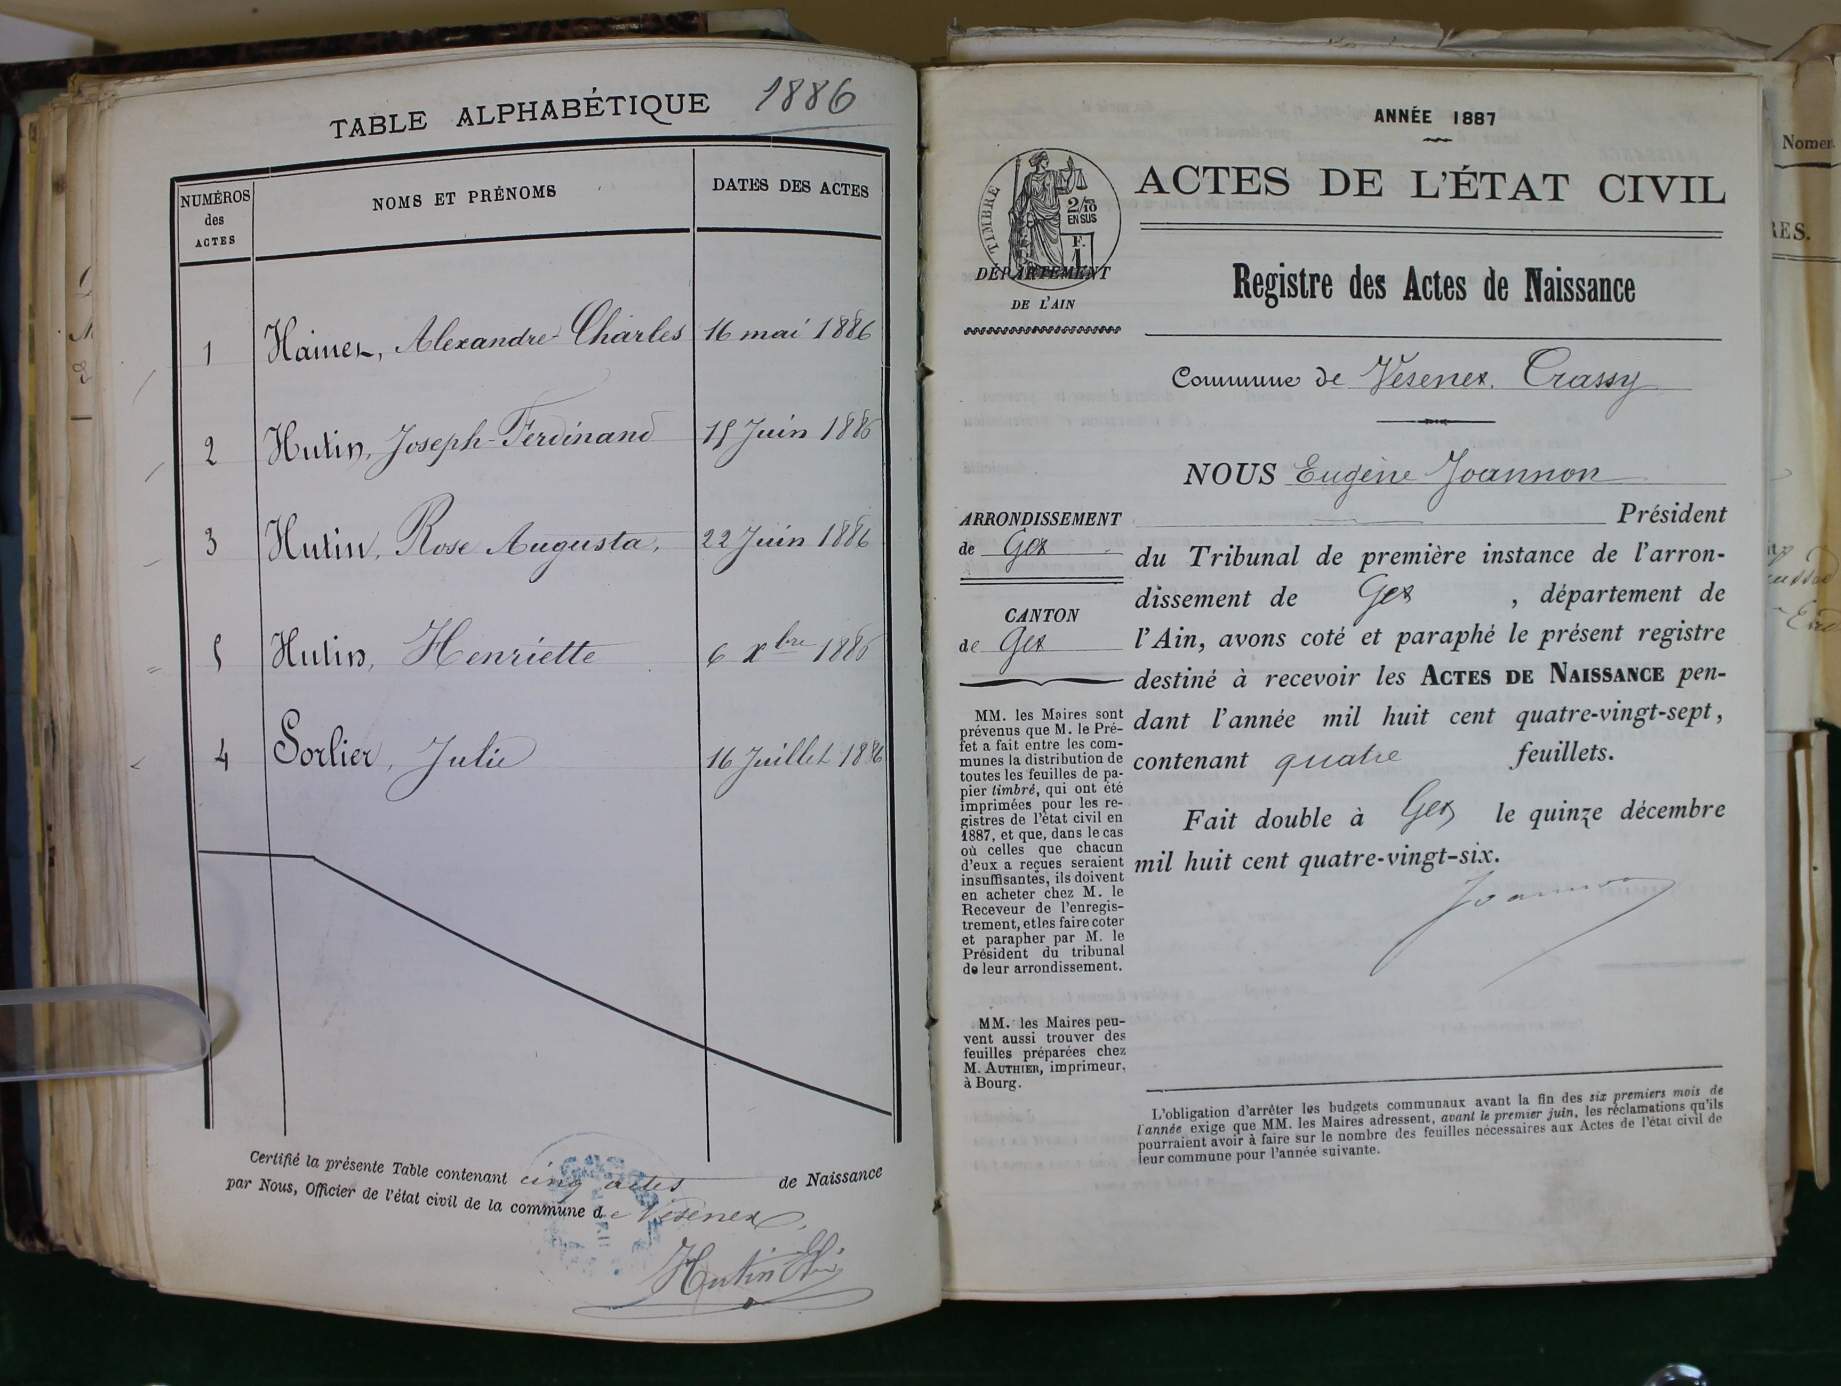 TABLE ALPHABÉTIQUE 1886
NUMÉROS des ACTES
NOMS ET PRÉNOMS
DATES DES ACTES
1 Hainez, Alexandre Charles 16 mai 1886
2 Hutin, Joseph-Ferdinand 15 Juin 1886
3 Hutin, Rose Augusta, 22 Juin 1886
5 Hutin, Henriette 6 Xbre 1886
4 Sorlier, Julie 16 Juillet 1886
Certifié la présente Table contenant cinq actes de Naissance
par Nous, Officier de l'état civil de la commune de Vésenex,
Hutin
ANNÉE 1887
TIMBRE
2/10
EN SUS
F.
1
ACTES DE L'ÉTAT CIVIL
DÉPARTEMENT
DE L'AIN
Registre des Actes de Naissance
Commune de Vésenex. Crassy
NOUS Eugène Joannon
Président
ARRONDISSEMENT
de Gex
CANTON
de Gex
du Tribunal de première instance de l'arron-
dissement de Gex, département de
l'Ain, avons coté et paraphé le présent registre
destiné à recevoir les ACTES DE NAISSANCE pen-
dant l'année mil huit cent quatre-vingt-sept,
contenant quatre feuillets.
Fait double à Gex le quinze décembre
mil huit cent quatre-vingt-six.
Joannon
MM. les Maires sont
prévenus que M. le Pré-
fet a fait entre les com-
munes la distribution de
toutes les feuilles de pa-
pier timbré, qui ont été
imprimées pour les re-
gistres de l'état civil en
1887, et que, dans le cas
où celles que chacun
d'eux a reçues seraient
insuffisantes, ils doivent
en acheter chez M. le
Receveur de l'enregis-
trement, et les faire coter
et parapher par M. le
Président du tribunal
de leur arrondissement.
MM. les Maires peu-
vent aussi trouver des
feuilles préparées chez
M. AUTHIER, imprimeur,
à Bourg.
L'obligation d'arrêter les budgets communaux avant la fin des six premiers mois de
l'année exige que MM. les Maires adressent, avant le premier juin, les réclamations qu'ils
pourraient avoir à faire sur le nombre des feuilles nécessaires aux Actes de l'état civil de
leur commune pour l'année suivante.
Nomer
RES.